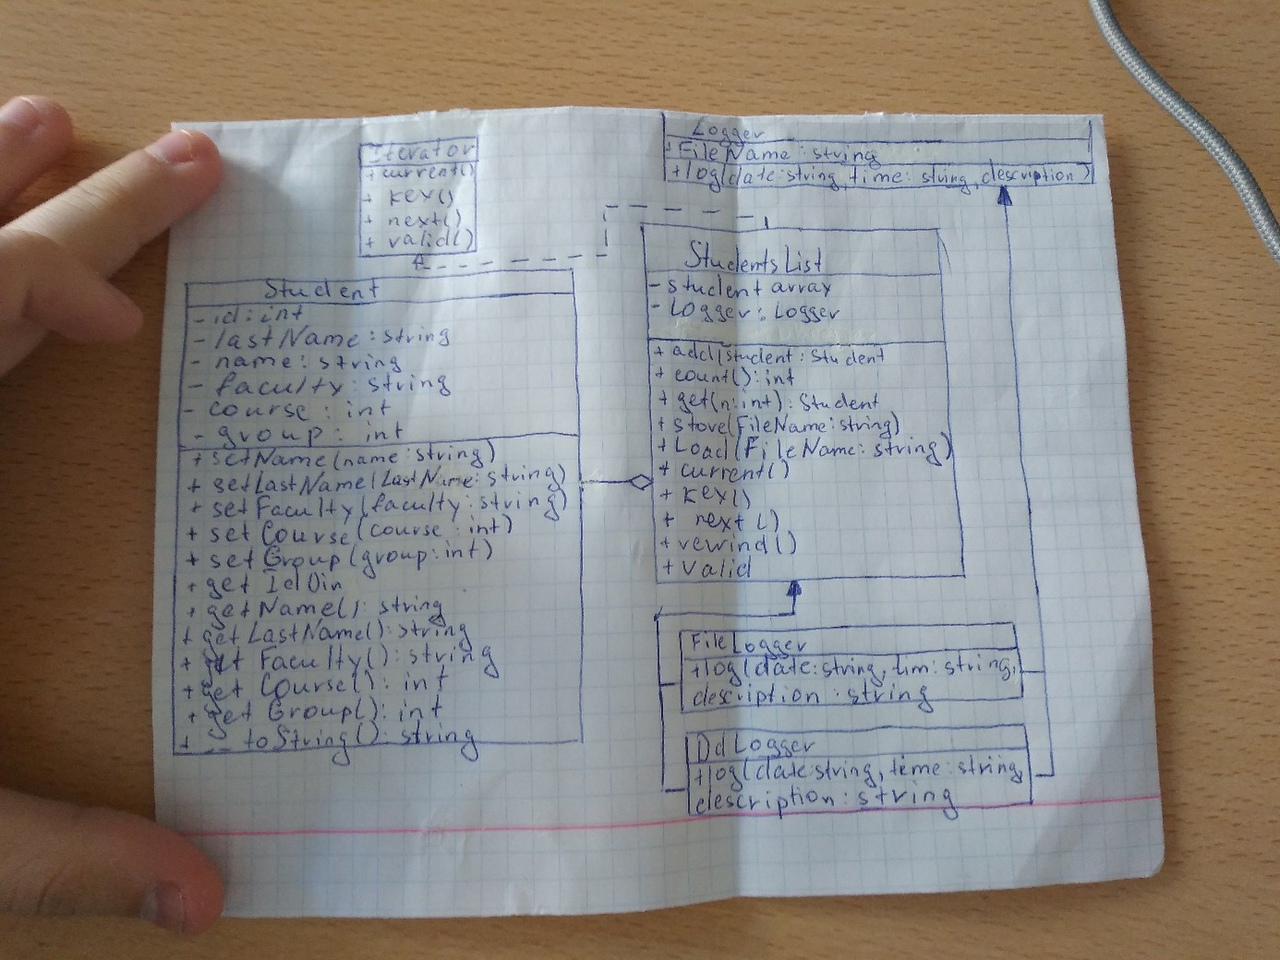 Iterator
+ current()
+ key()
+ next()
+ valid()
Logger
+ FileName: string
+ log(date:string, time: string, description)
Student
- id: int
- lastName: string
- name: string
- faculty: string
- course: int
- group: int
+ setName(name: string)
+ setLastName(LastName: string)
+ setFaculty(faculty: string)
+ set Course(course: int)
+ set Group(group: int)
+ get
+ getName(): string
+ get LastName(): string
+ get Faculty(): string
+ get Course(): int
+ get Group(): int
+ __ toString(): string
StudentsList
- student array
- Logger: Logger
+ add(student: Student
+ count(): int
+ get(n:int): Student
+ store(FileName: string)
+ Load(FileName: string)
+ current()
+ key()
+ next()
+ rewind()
+ valid
FileLogger
+log(date:string, tim: string,
description: string
DdLogger
+log(date:string, time: string,
description: string